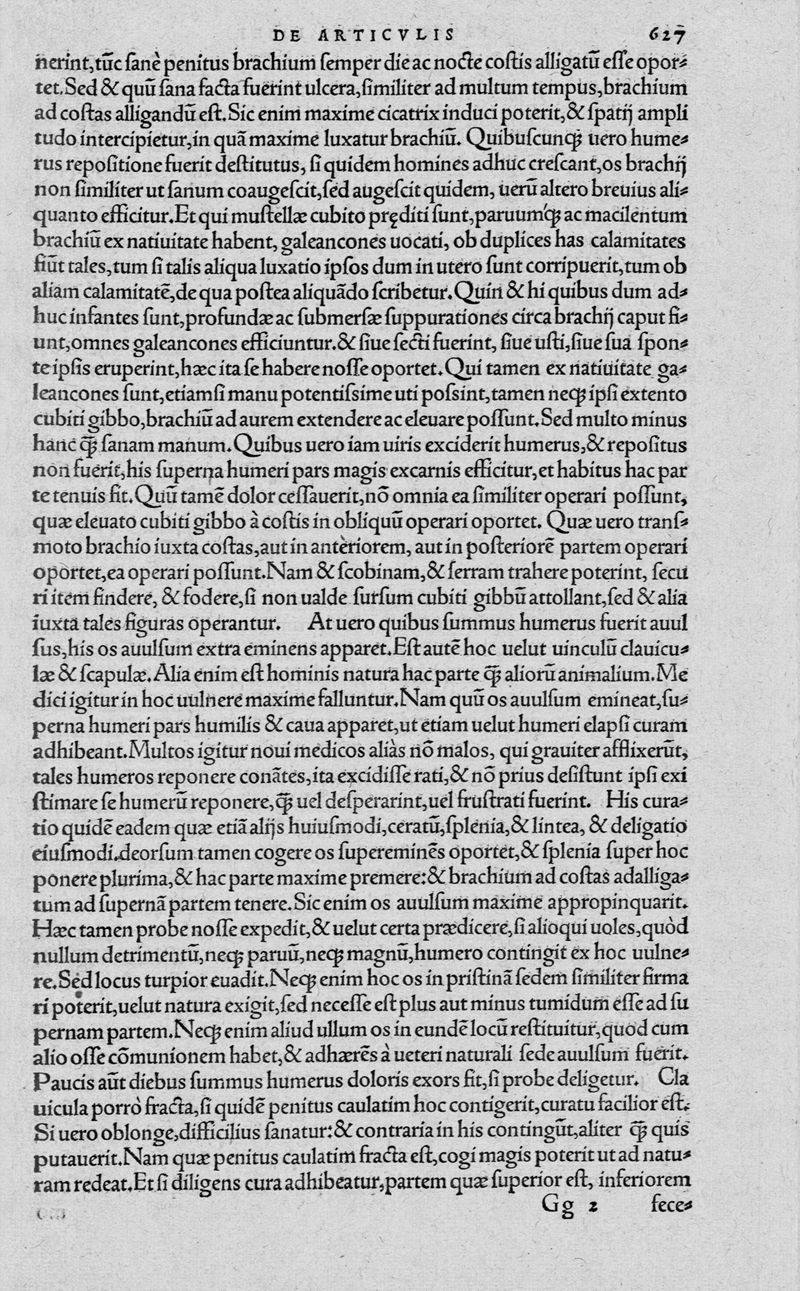 DE ARTICVLIS 627
nerint,tũc ſanè penitus brachium ſemper die ac nocte coſtis alligatũ eſſe opor-
tet.Sed & quũ ſana facta fuerint ulcera,ſimiliter ad multum tempus,brachium
ad coſtas alligandũ eſt.Sic enim maxime cicatrix induci poterit,& ſpatij ampli
tudo intercipietur,in quã maxime luxatur brachiũ. Quibuſcunq; uero hume-
rus repoſitione fuerit deſtitutus, ſi quidem homines adhuc creſcant,os brachij
non ſimiliter ut ſanum coaugeſcit,ſed augeſcit quidem, uerũ altero breuius ali-
quanto efficitur.Et qui muſtellæ cubito pręditi ſunt,paruumq́; ac macilentum
brachiũ ex natiuitate habent, galeancones uocati, ob duplices has calamitates
fiũt tales,tum ſi talis aliqua luxatio ipſos dum in utero ſunt corripuerit,tum ob
aliam calamitatẽ,de qua poſtea aliquãdo ſcribetur.Quin & hi quibus dum ad-
huc infantes ſunt,profundæ ac ſubmerſæ ſuppurationes circa brachij caput fi-
unt,omnes galeancones efficiuntur.& ſiue ſecti fuerint, ſiue uſti,ſiue ſua ſpon-
te ipſis eruperint,hæc ita ſe habere noſſe oportet.Qui tamen ex natiuitate ga-
leancones ſunt,etiamſi manu potentiſsime uti poſsint,tamen neq; ipſi extento
cubiti gibbo,brachiũ ad aurem extendere ac eleuare poſſunt.Sed multo minus
hanc q̃ ſanam manum.Quibus uero iam uiris exciderit humerus,& repoſitus
non fuerit,his ſuperna humeri pars magis excarnis efficitur,et habitus hac par
te tenuis fit.Quũ tamẽ dolor ceſſauerit,nõ omnia ea ſimiliter operari poſſunt,
quæ eleuato cubiti gibbo à coſtis in obliquũ operari oportet. Quæ uero tranſ-
moto brachio iuxta coſtas,aut in anteriorem, aut in poſteriorẽ partem operari
oportet,ea operari poſſunt.Nam & ſcobinam,& ſerram trahere poterint, ſecu
ri item findere, & fodere,ſi non ualde ſurſum cubiti gibbũ attollant,ſed & alia
iuxta tales figuras operantur. At uero quibus ſummus humerus fuerit auul
ſus,his os auulſum extra eminens apparet.Eſt autẽ hoc uelut uinculũ clauicu-
læ & ſcapulæ.Alia enim eſt hominis natura hac parte q̃ aliorũ animalium.Me
dici igitur in hoc uulnere maxime falluntur.Nam quũ os auulſum emineat,ſu-
perna humeri pars humilis & caua apparet,ut etiam uelut humeri elapſi curam
adhibeant.Multos igitur noui medicos aliàs nõ malos, qui grauiter afflixerũt,
tales humeros reponere conãtes,ita excidiſſe rati,& nõ prius deſiſtunt ipſi exi
ſtimare ſe humerũ reponere,q̃ uel deſperarint,uel fruſtrati fuerint. His cura-
tio quidẽ eadem quæ etiã alijs huiuſmodi,ceratũ,ſplenia,& lintea, & deligatio
eiuſmodi.deorſum tamen cogere os ſupereminẽs oportet,& ſplenia ſuper hoc
ponere plurima,& hac parte maxime premere:& brachium ad coſtas adalliga-
tum ad ſupernã partem tenere.Sic enim os auulſum maxime appropinquarit.
Hæc tamen probe noſſe expedit,& uelut certa prædicere,ſi alioqui uoles,quòd
nullum detrimentũ,neq; paruũ,neq; magnũ,humero contingit ex hoc uulne-
re.Sed locus turpior euadit.Neq; enim hoc os in priſtinã ſedem ſimiliter firma
ri poterit,uelut natura exigit,ſed neceſſe eſt plus aut minus tumidum eſſe ad ſu
pernam partem.Neq; enim aliud ullum os in eundẽ locũ reſtituitur,quod cum
alio oſſe cõmunionem habet,& adhærẽs à ueteri naturali ſede auulſum fuerit.
Paucis aũt diebus ſummus humerus doloris exors fit,ſi probe deligetur. Cla
uicula porrò fracta,ſi quidẽ penitus caulatim hoc contigerit,curatu facilior eſt.
Si uero oblonge,difficilius ſanatur:& contraria in his contingũt,aliter q̃ quis
putauerit.Nam quæ penitus caulatim fracta eſt,cogi magis poterit ut ad natu-
ram redeat.Et ſi diligens cura adhibeatur,partem quæ ſuperior eſt, inferiorem
Gg 2 fece-